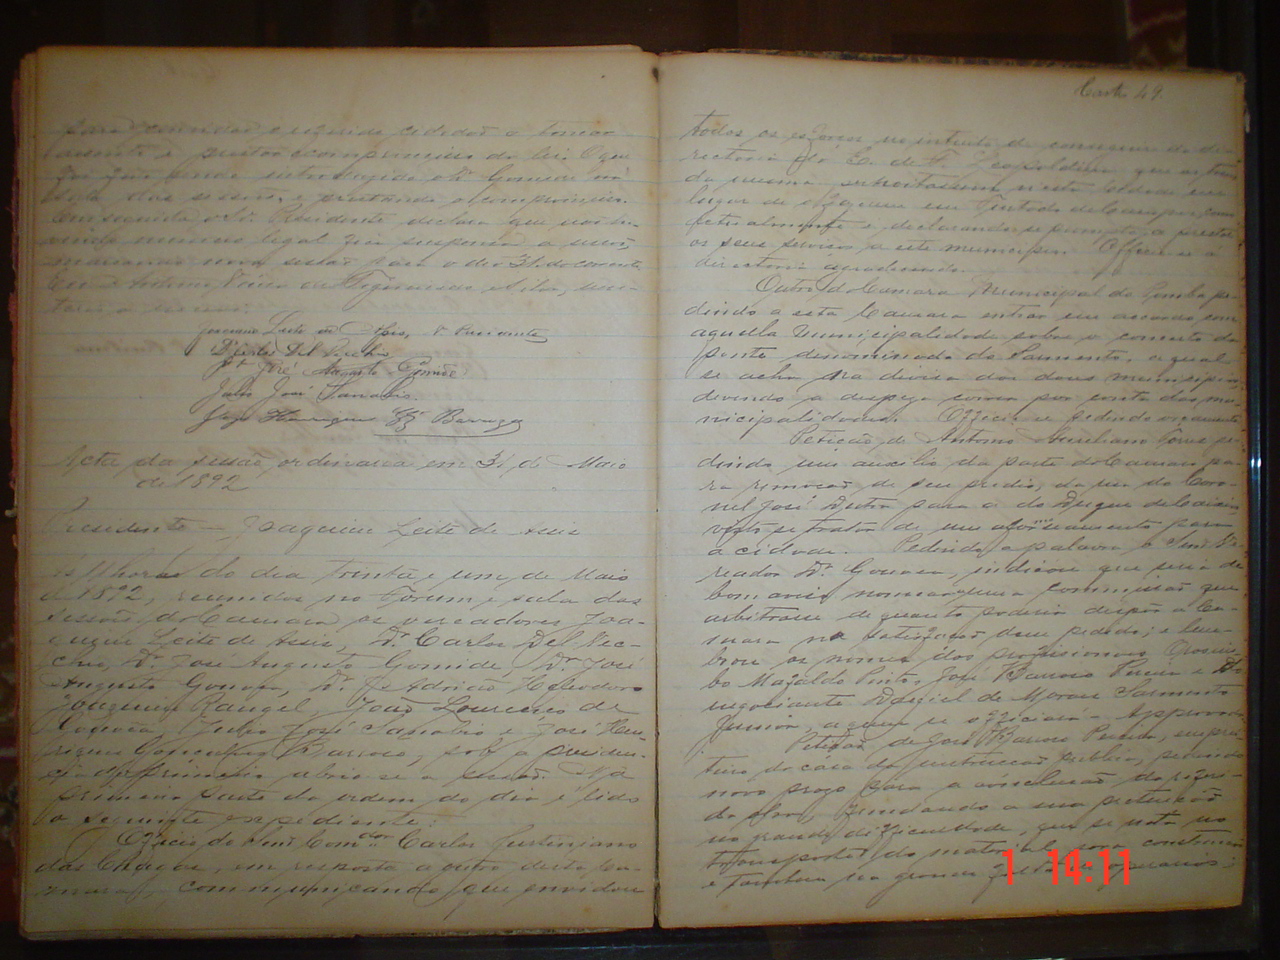 para convidar o referido cidadão a tomar
assento e prestar o compromisso da lei. O que
foi feito sendo introduzido o Dr. Gomide na
sala das sessões, e prestando o compromisso.
Em seguida o Sr. Presidente declara que não ha-
vendo numero legal fica suspensa a sessão
marcando nova sessão para o dia 31 do corrente.
Eu Antonio da Silva, secre-
tario, a escrevi.
Joaquim Leite de Assis, V. Presidente
Carlos Del Vecchio
José Augusto Gomide
Julio José Sanabio
José Henriques Barroso
Acta da sessão ordinaria em 31 de Maio
de 1892
Presidente — Joaquim Leite de Assis
horas do dia trinta e um de Maio
de 1892, reunidos no Forum e sala das
sessões da Camara os vereadores Joa-
quim Leite de Assis, Dr. Carlos Del Vec-
chio, Dr. José Augusto Gomide, Dr. José
Augusto Gouvea, Heliodoro
Joaquim Rangel, João Lourenço de
Julio José Sanabio e José Hen-
riques Barroso, sob a presiden-
cia do primeiro abrio-se a sessão. Na
primeira parte da ordem do dia é lido
o seguinte expediente:
Officio do Snr. Comdor Carlos Justiniano
das Chagas, em resposta a outro desta Ca-
mara, communicando que envidou
49
todos os esforços no intuito de conseguir da di-
rectoria da E. de F. Leopoldina que os trens
da mesma pernoitassem nesta cidade em
lugar de o fazerem em Furtado de Campos, como
actualmente e declarando-se prompto a prestar
os seus serviços a este municipio. Officie-se á
directoria agradecendo.
Outro da Camara Municipal do Pomba pe-
dindo a esta Camara entrar em accordo com
aquella Municipalidade sobre o concerto da
ponte denominada do Sarmento, a qual
se acha na divisa dos dous municipios,
devendo a despeza correr por conta das mu-
nicipalidades. Officie-se pedindo orçamento.
Petição de Antonio Aureliano pe-
dindo um auxilio da parte da Camara pa-
ra remoção de seu predio, da rua do Coro-
nel José Dutra para a do Duque de Caxias
visto se tratar de um aformoseamento para
a cidade. Pedindo a palavra o Snr. Ve-
reador Dr. Gouvea, indicou que seria de
bom aviso nomear-se uma commissão que
arbitrasse de quanto poderia dispor a Ca-
mara na satisfação desse pedido; e lem-
brou os nomes dos profissionaes Orosim-
bo Mafaldo Pinto, José Barroso Pereira e do
negociante Daniel de Moraes Sarmento
Junior, a quem se officiará. Approvado.
Petição de José Barroso Pereira, emprei-
teiro da casa da instrucção publica, pedindo
novo prazo para a conclusão do referi-
do predio, fundando a sua pretenção
na grande difficuldade, que se nota no
transporte do material para construcção
e tambem na grande falta de operarios.
1 14:11